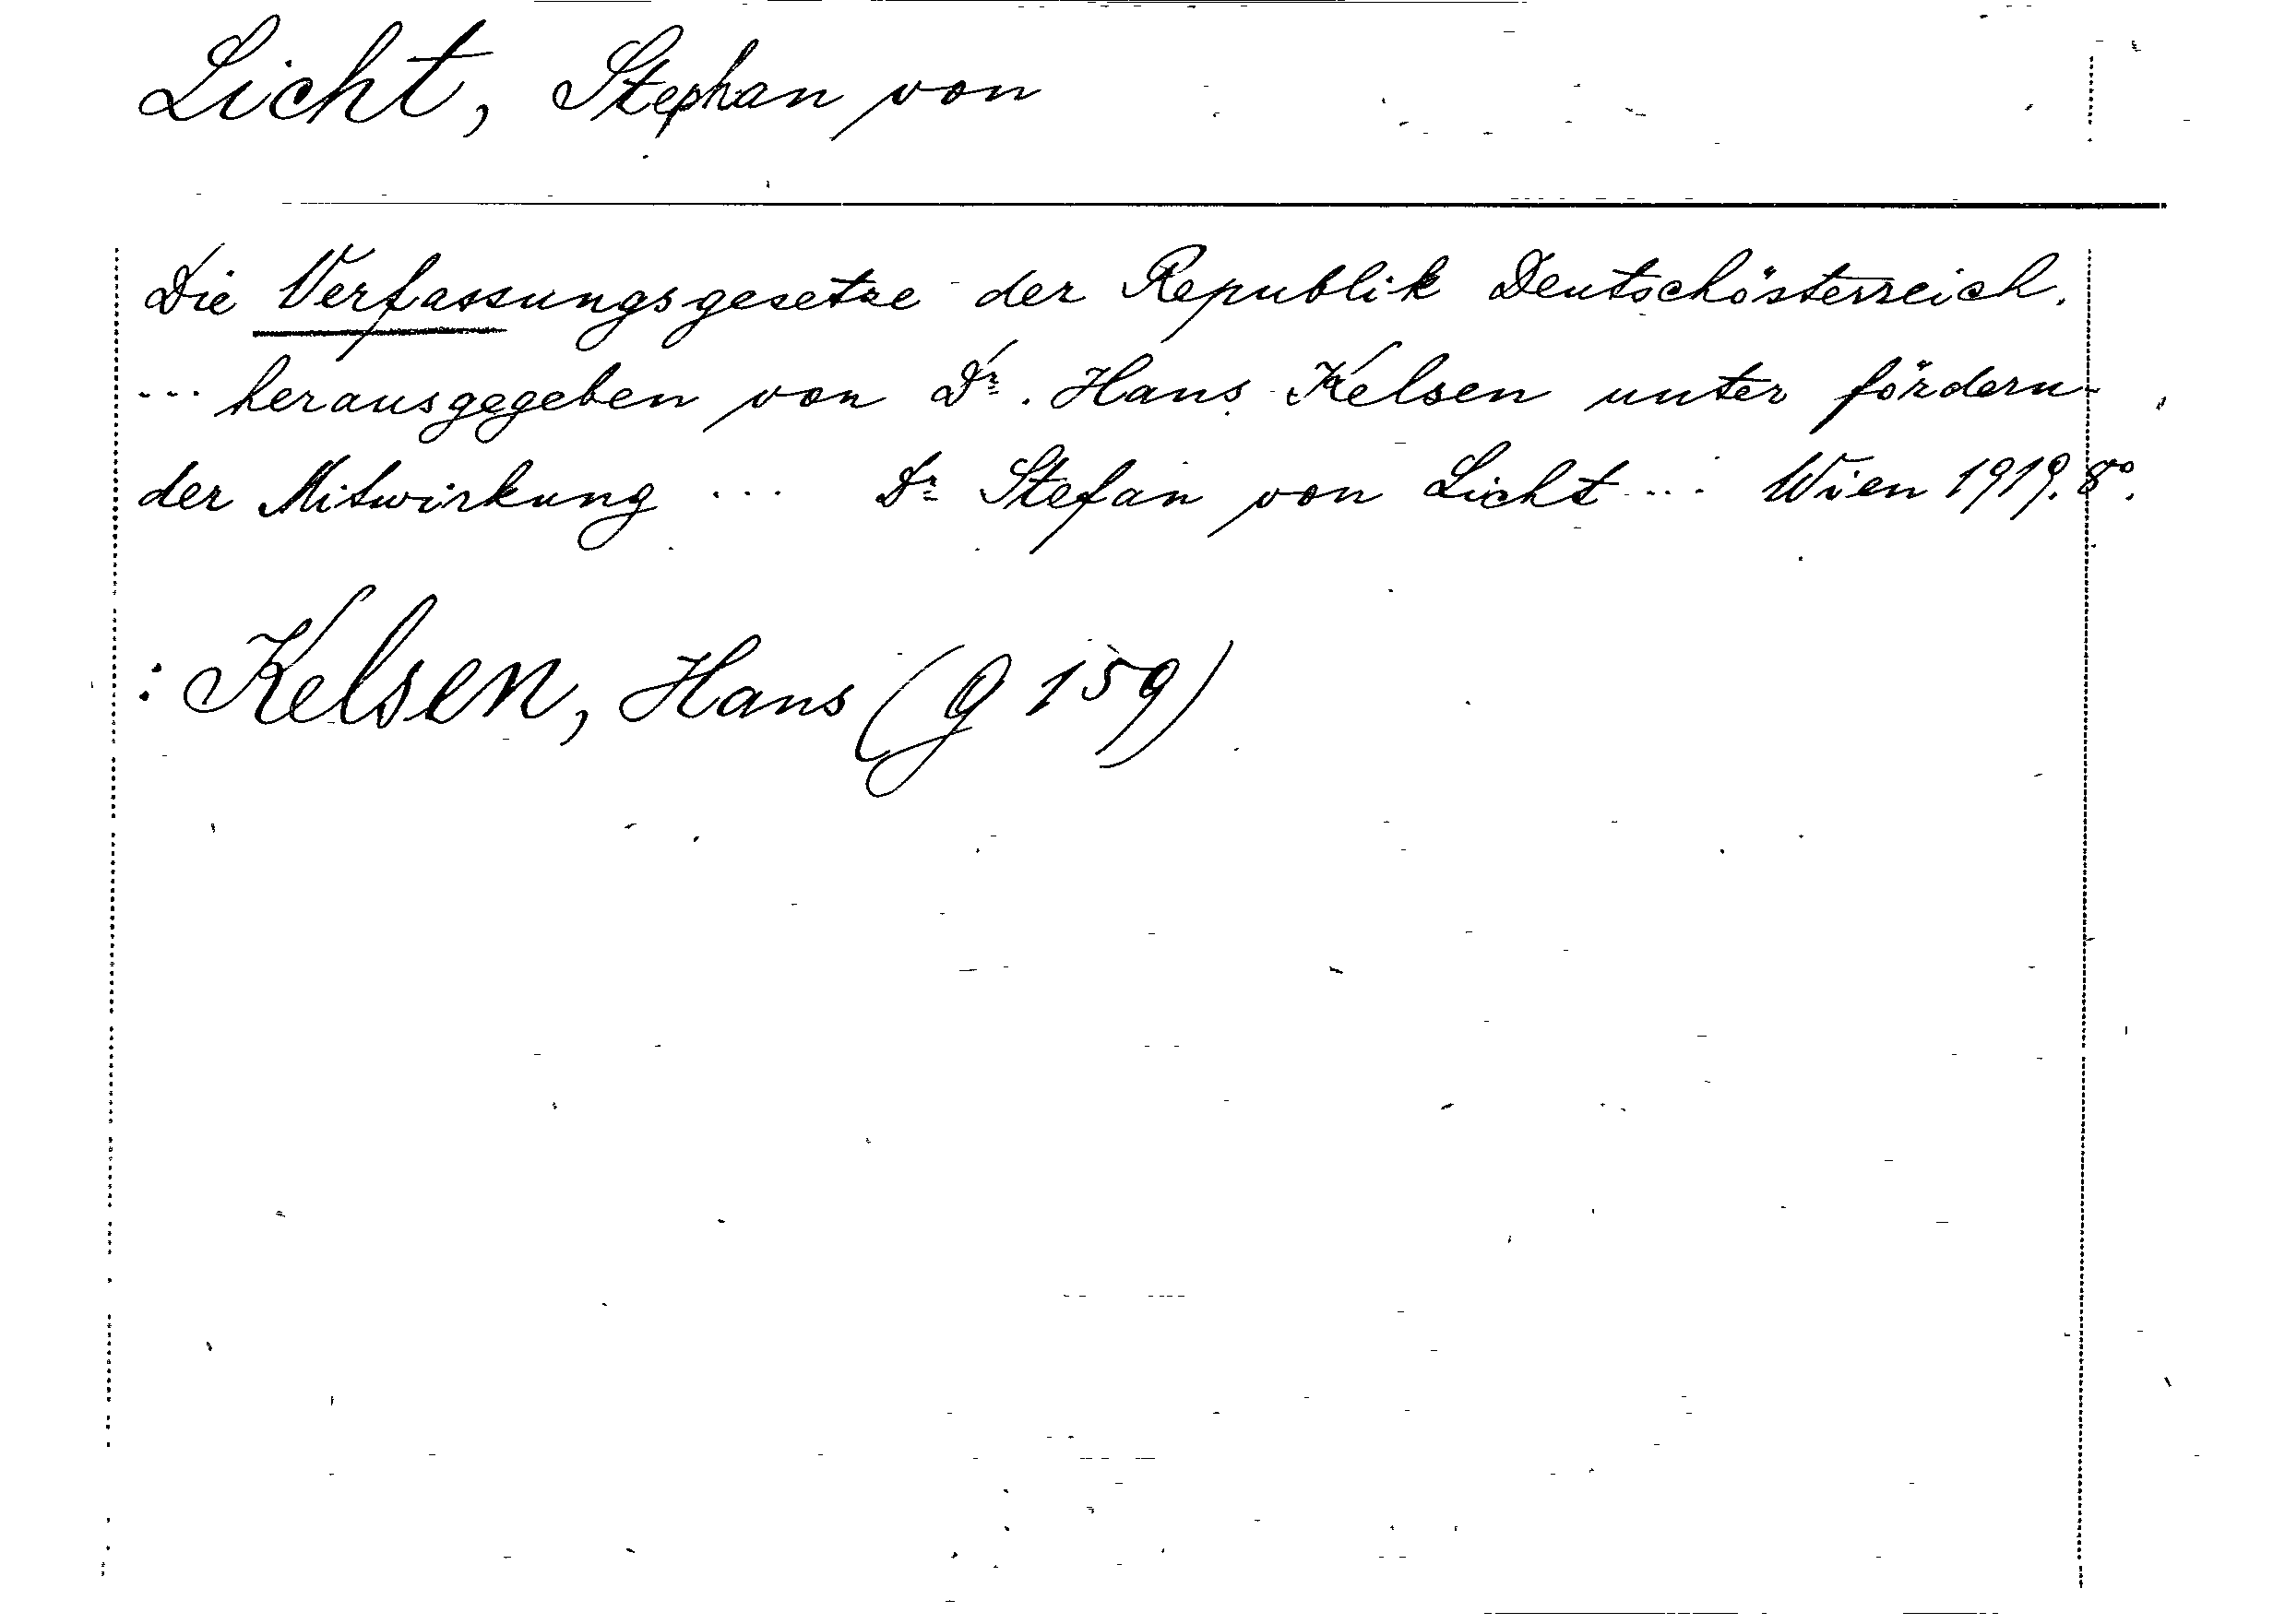 Licht, Stephan von
Die Verfassungsgesetze der Republik Deutschösterreich.
... herausgegeben von Dr. Hans Kelsen unter fördern-
der Mitwirkung ... Dr Stefan von Licht ... Wien 1919. 8°.
: Kelsen, Hans (g 159)